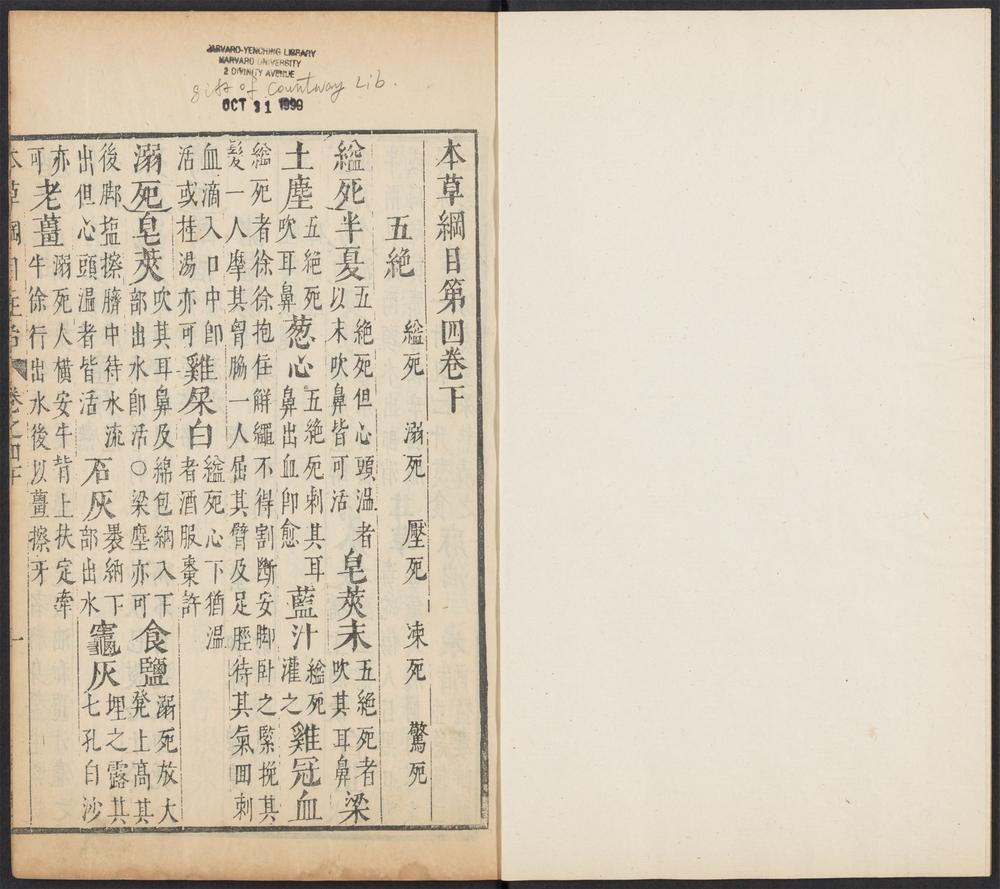 HARVARD-YENCHING LIBRARY
HARVARD UNIVERSITY
2 DIVINITY AVENUE
gift of Countway Lib.
OCT 31 1999
本草綱目第四卷下
五絕 縊死 溺死 壓死 凍死 驚死
縊死半夏五絕死但心頭溫者以末吹鼻皆可活皂莢末五絕死者吹其耳鼻梁
土塵五絕死吹耳鼻葱心五絕死刺其耳鼻出血卽愈藍汁縊死灌之雞冠血
縊死者徐徐抱住觧繩不得割斷安脚卧之緊挽其髮一人摩其胷脇一人屈其臂及足脛待其氣囬刺
血滴入口中卽活或桂湯亦可雞屎白縊死心下猶溫者酒服棗許
溺死皂莢吹其耳鼻及綿包納入下部出水卽活○梁塵亦可食鹽溺死放大發上高其
後脚塩擦臍中待水流出但心頭溫者皆活石灰褁納下部出水竈灰埋之露其七孔白沙
亦可老薑溺死人橫安牛背上扶定牽牛徐行出水後以薑擦牙
本草綱目主治 卷之四下 一